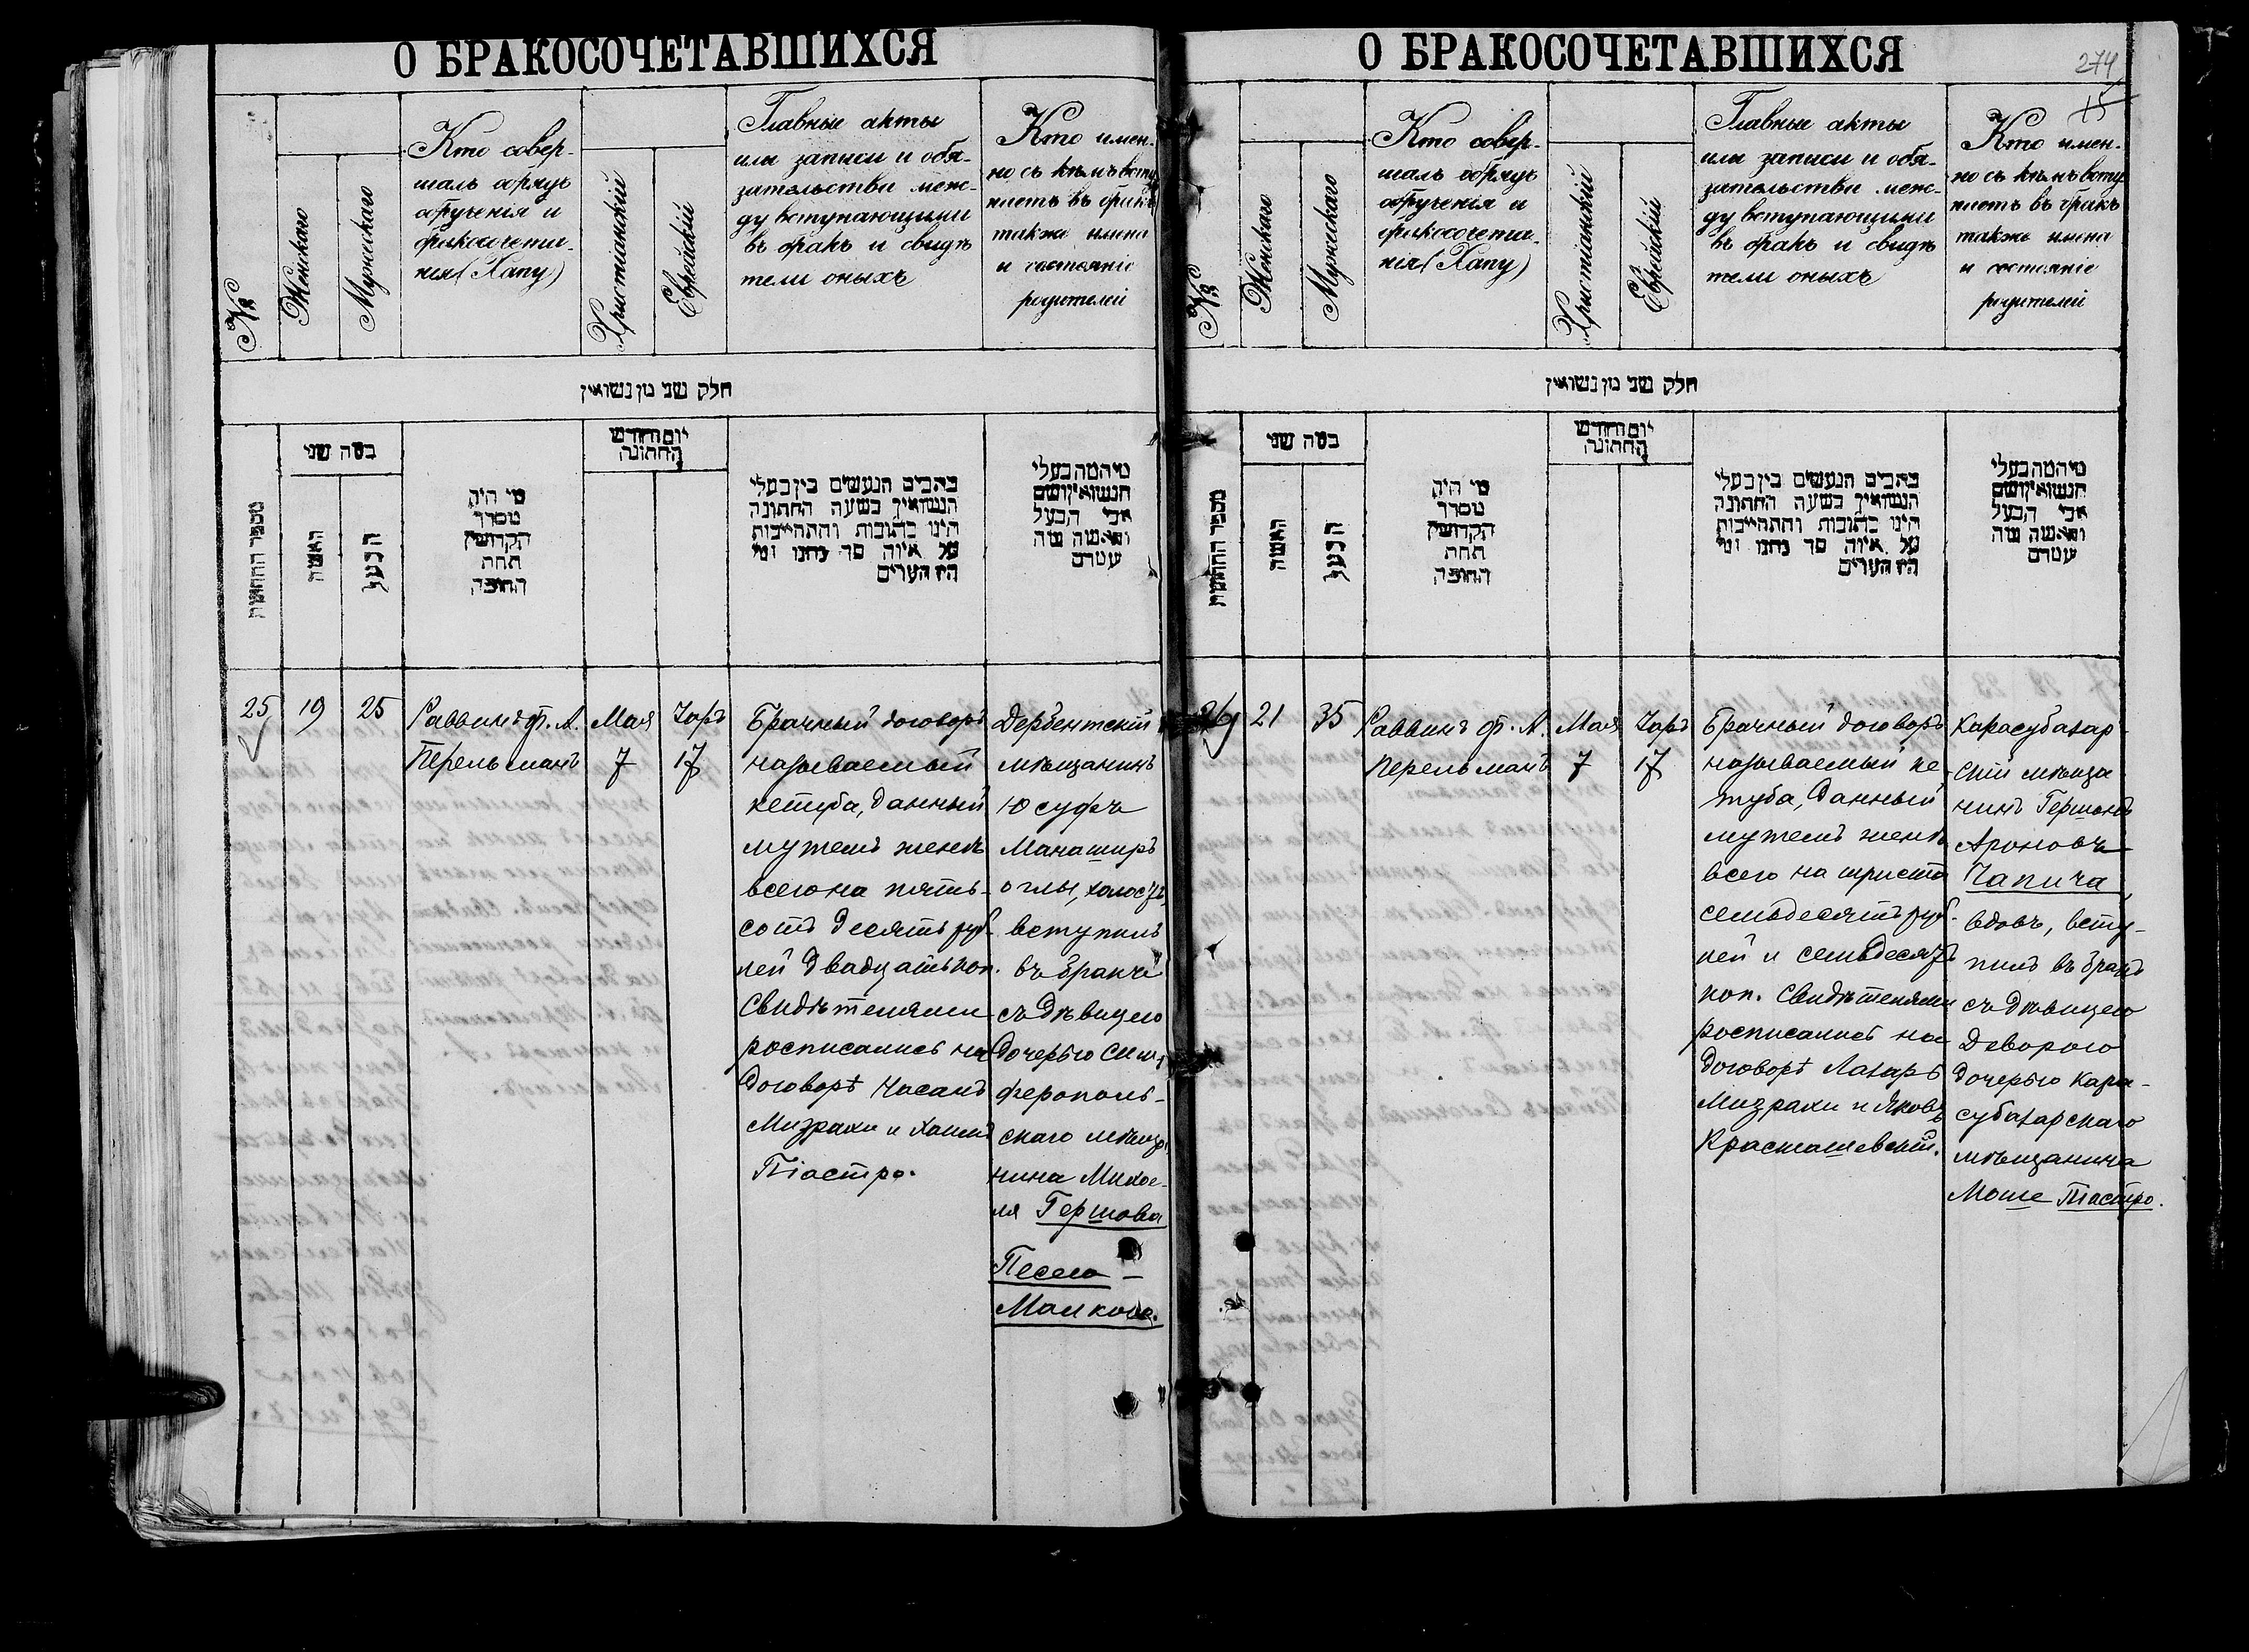 О БРАКОСОЧЕТАВШИХСЯ
№
Женскаго
Мужескаго
Кто совер-
шалъ обрядъ
обрученія и
бракосочета-
нія (Хапу)
Христіанскій
Еврейскій
Главные акты
или записи и обя-
зательства меж-
ду вступающими
въ бракъ и свидѣ
тели оныхъ
Кто имен-
но съ кѣмъ всту
паетъ въ бракъ
также имена
и состояніе
родителей
חלק שני מן נשואין
מספר החתונות
כמה שני
האשה
הבעל
מי היה
מסדר
הקדושין
תחת
החופה
יום וחודש
החתונה
כתבים הנעשים בין בעלי
הנשואין בשעה החתונה
היינו כתובות והתחייבות
על איזה סך נתנו ומי
היו העדים
מי המה בעלי
הנשואין ושם
אבי הבעל
והאשה ומה
עטרם
25
19
25
Раввинъ ф. А.
Перельманъ
Мая
7
Іаръ
17
Брачный договоръ
называемый
кетуба, данный
мужемъ женѣ
всего на пять-
сотъ десять руб-
лей двадцать коп.
Свидѣтелями
росписались на
договорѣ Насанъ
Мизрахи и Хаимъ
Піастро.
Дербентскій
мѣщанинъ
Юсуфъ
Манаширъ
оглы, холостъ,
вступилъ
въ бракъ
съ дѣвицею
дочерью Сим-
ферополь-
скаго мѣща-
нина Михое-
ля Гершова
Песею -
Малкою.
О БРАКОСОЧЕТАВШИХСЯ
274
15
№
Женскаго
Мужескаго
Кто совер-
шалъ обрядъ
обрученія и
бракосочета-
нія (Хапу)
Христіанскій
Еврейскій
Главные акты
или записи и обя-
зательства меж-
ду вступающими
въ бракъ и свидѣ
тели оныхъ
Кто имен-
но съ кѣмъ всту
паетъ въ бракъ
также имена
и состояніе
родителей
חלק שני מן נשואין
מספר החתונות
כמה שני
האשה
הבעל
מי היה
מסדר
הקדושין
תחת
החופה
יום וחודש
החתונה
כתבים הנעשים בין בעלי
הנשואין בשעה החתונה
היינו כתובות והתחייבות
על איזה סך נתנו ומי
היו העדים
מי המה בעלי
הנשואין ושם
אבי הבעל
והאשה ומה
עטרם
26
21
35
Раввинъ ф. А.
Перельманъ
Мая
7
Іаръ
17
Брачный договоръ
называемый ке-
туба, данный
мужемъ женѣ
всего на триста
семьдесятъ руб-
лей и семьдесятъ
коп. Свидѣтелями
росписались на
договорѣ Лазарь
Мизрахи и Яковъ
Красношевскій.
Карасубазар-
скій мѣща
нинъ Гершонъ
Ароновъ
Чапича
вдовъ, всту-
пилъ въ бракъ
съ дѣвицею
Деворою
дочерью Кара-
субазарскаго
мѣщанина
Моше Піастро.